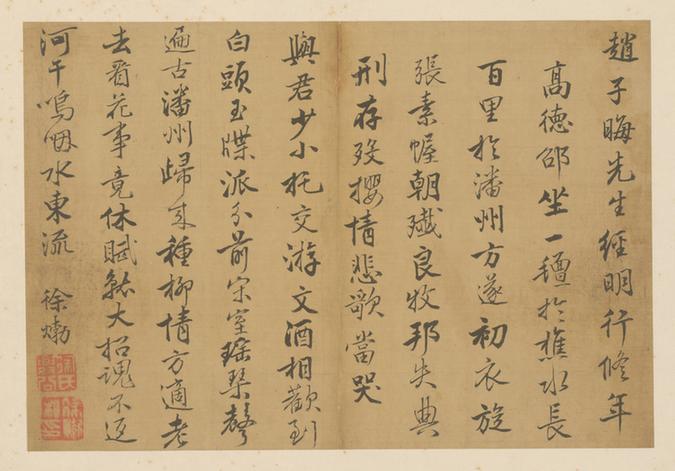 趙子晦先生經明行修年
高德邵坐一氊於樵水長
百里於潘州方遂初衣旋
張素幄朝殲良牧邦失典
刑存歿攖情悲歌當哭
與君少小托交游文酒相歡到
白頭玉牒派分前宋室瑤琴聲
遍古潘州歸來種柳情方適老
去看花事竟休賦就大招魂不返
河干嗚咽水東流 徐𤊹